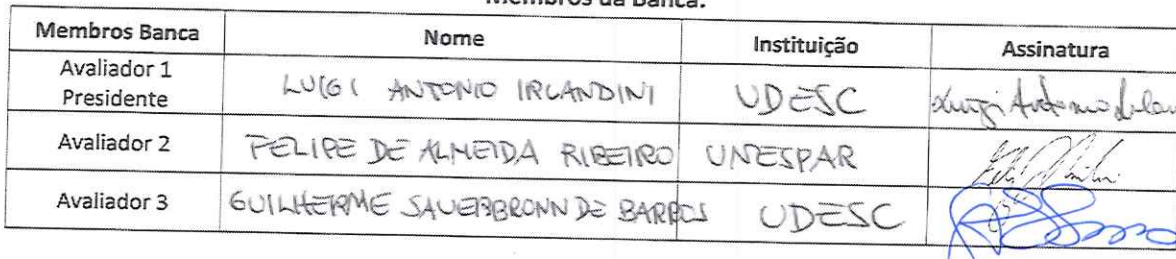 Membros da Banca:
Membros Banca Nome Instituição Assinatura
Avaliador 1
Presidente LUIGI ANTONIO IRLANDINI UDESC Luigi Antonio Irlan
Avaliador 2 FELIPE DE ALMEIDA RIBEIRO UNESPAR
Avaliador 3 GUILHERME SAUERBRONN DE BARROS UDESC